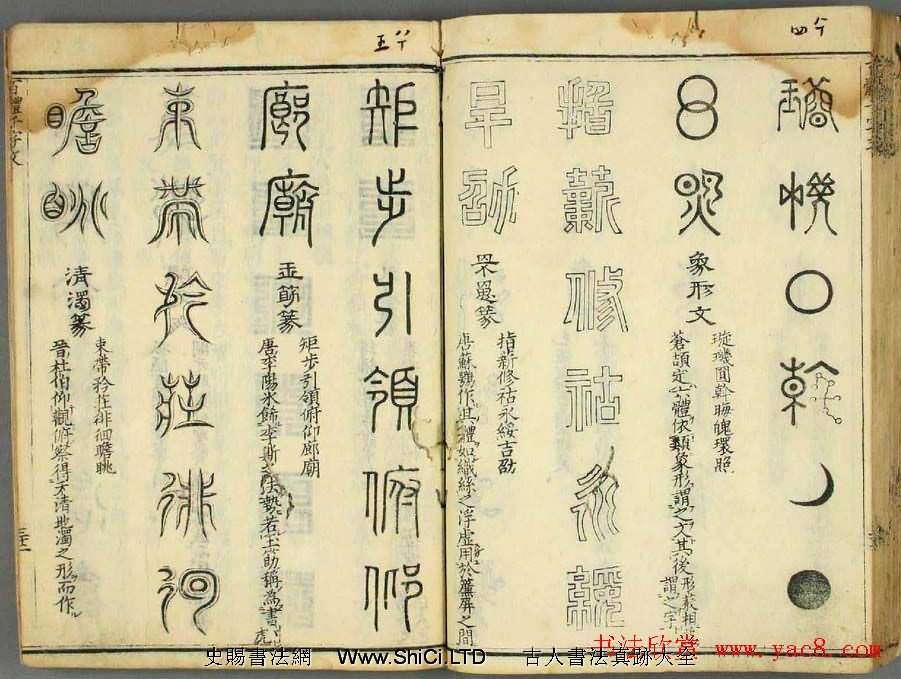 璇璣懸斡晦魄
環照
象形文
璇璣懸斡晦魄環照
蒼頡定六體依類象形謂之文其後形聲相
謂之字
指薪修祜永綏
吉劭
罘罳篆
指薪修祜永綏吉劭
唐蘇鶚作其體如織絲之浮虛用於簾屏之間
矩步引領俯仰
廊廟
玉筯篆
矩步引領俯仰廊廟
唐李陽冰飾李斯之法勢若玉筯稱為書虎
束帶矜莊徘徊
瞻眺
清濁篆
束帶矜莊徘徊瞻眺
晉杜伯仰觀俯察得天清地濁之形而作
百體千字文
史賜書法網 Www.ShiCi.LTD 古人書法真跡大全
书法欣赏 www.yac8.com